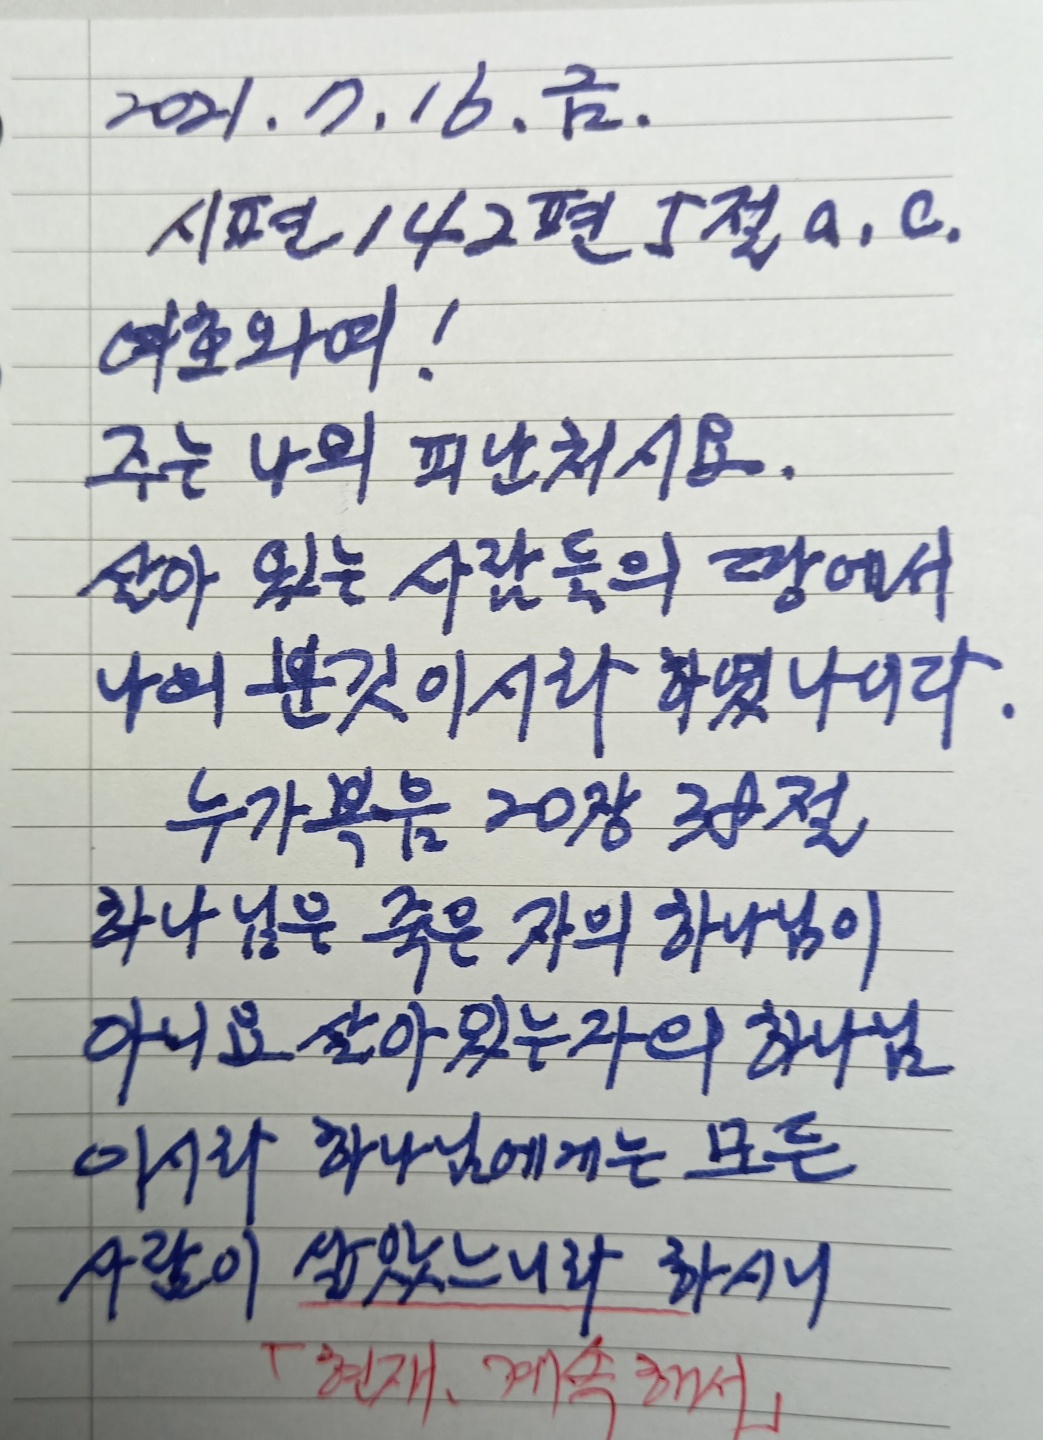 2021. 7. 16. 금.
시편 142편 5절 a. c.
여호와여!
주는 나의 피난처시요.
살아 있는 사람들의 땅에서
나의 분깃이시라 하였나이다.
누가복음 20장 38절
하나님은 죽은 자의 하나님이
아니요 살아있는자의 하나님
이시라 하나님에게는 모든
사람이 살았느니라 하시니
「현재, 계속해서」